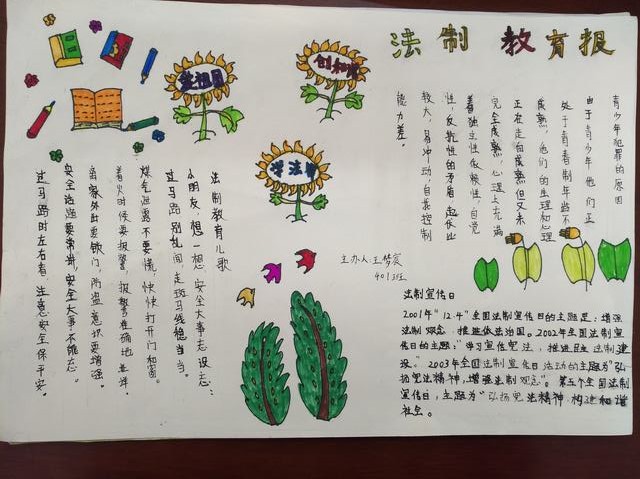 法制教育报
爱祖国
创和谐
学法律
青少年犯罪的原因
由于青少年他们正
处于青春制年龄不
成熟，他们的生理和心理
正在走向成熟但又未
完全成熟，心理上充满
着独立性依赖性，自觉
性，反抗性的矛盾，起伏
较大，易冲动，自我控制
能力差。
主办人：王梦宸
401班
法制教育儿歌
小朋友，想一想，安全大事志设忘：
过马路别乱闯，走斑马线稳当当。
煤气泄露不要慌，快快打开门和窗。
着火时候要报警，报警准确地址详。
离家外出要锁门，防盗意识要增强。
安全话题要常讲，安全大事不能忘。
过马路时左右看，注意安全保平安。
法制宣传日
2001年"12.4"全国法制宣传日的主题是：增强
法制观念，推进依法治国。2002年全国法制宣
传日的主题，"学习宣传宪法，推进民主法制建
设。"2003年全国法制宣传日活动的主题为"弘
扬宪法精神，增强法制观念"。第五个全国法制
宣传日，主题为"弘扬宪法精神，构建和谐
社会。